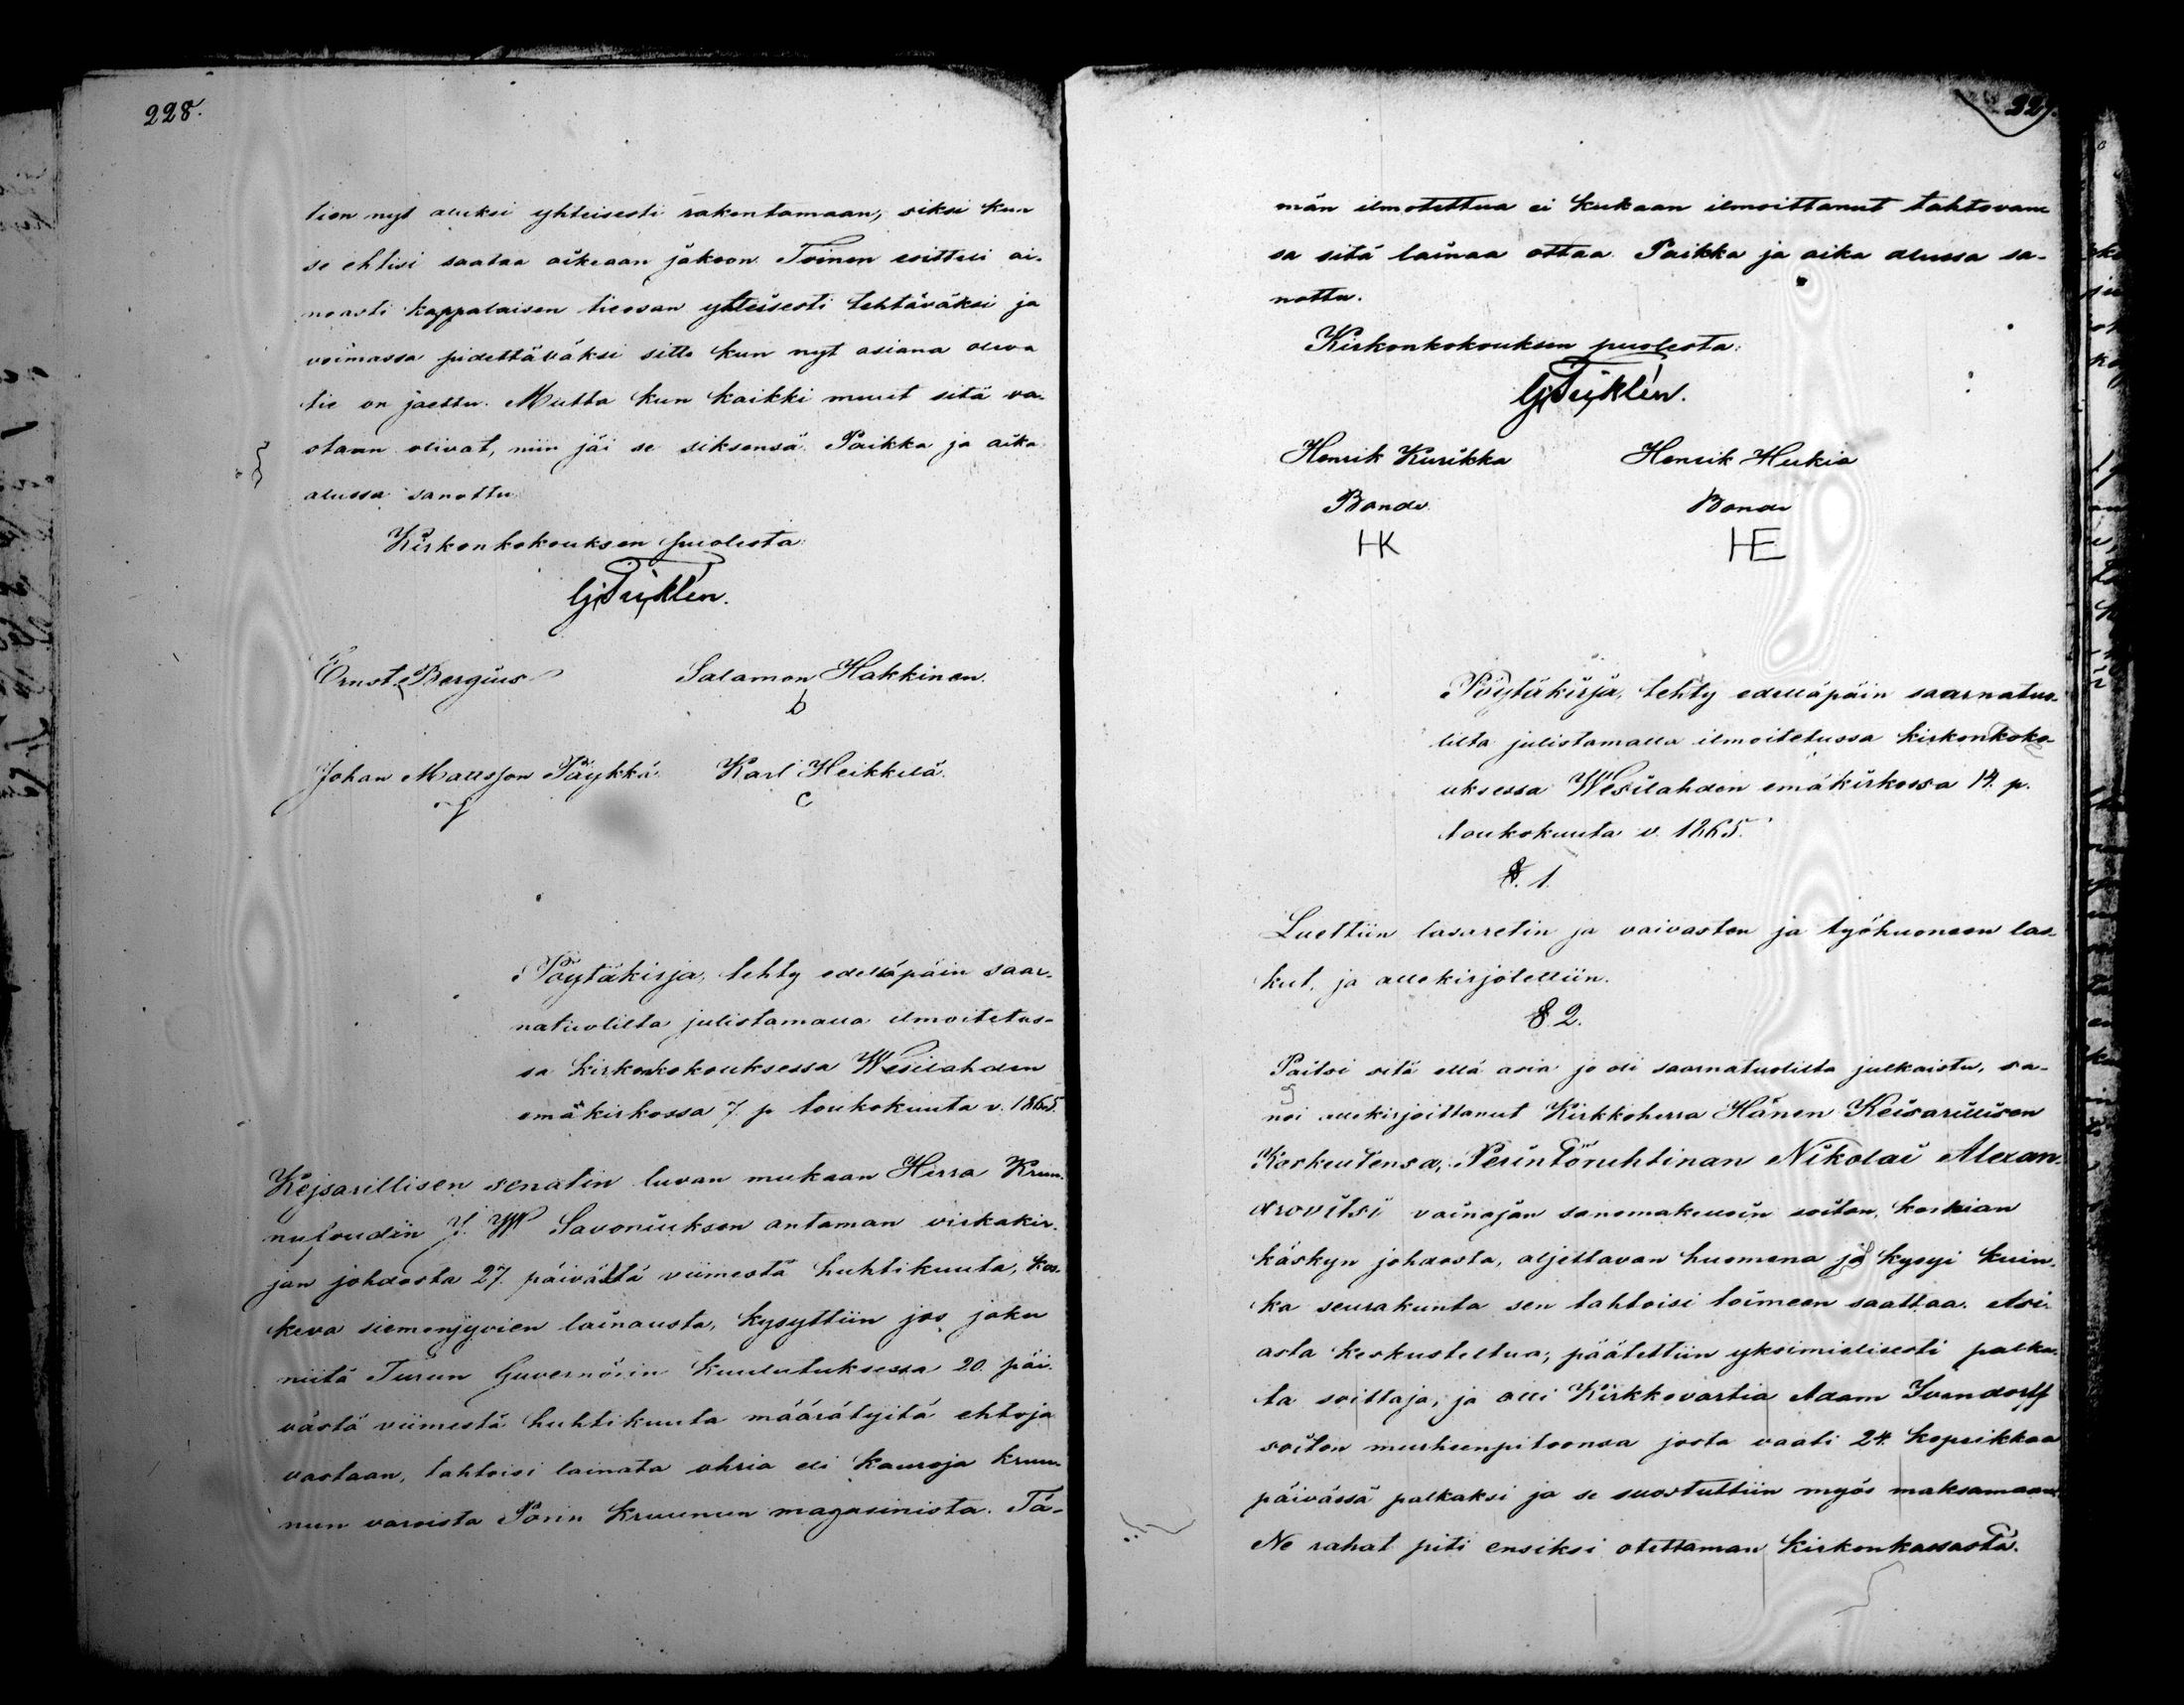 228.
tien nyt aluksi yhteisesti rakentamaan, siksi kun
se ehtisi saataa oikeaan jakoon. Toinen esitteli ai-
noasti kappalaisen tieosan yhteisesti tehtäväksi ja
voimassa pidettäväksi sitte kun nyt asiana oleva
tie on jaettu. Mutta kun kaikki muut sitä va-
staan olivat, niin jäi se siksensä. Paikka ja aika
alussa sanottu.
Kirkonkokouksen puolesta:
Ernst Bergius Salamon Hakkinen.
Johan Mattsson Päykkä. Karl Heikkilä.
Pöytäkirja, tehty edelläpäin saar-
natuolilta julistamalla ilmoitetus-
sa kirkonkokouksessa Wesilahden
emäkirkossa 7. p. toukokuuta v. 1865.
Kejsarillisen senatin luvan mukaan Herra Kruu-
nufoudin J. W Savoniuksen antaman virkakir-
jan johdosta 27. päivältä viimestä huhtikuuta, kos-
keva siemenjyvien lainausta, kysyttiin jos joku
niitä Turun Guvernörin kuulutuksessa 20. päi-
västä viimestä huhtikuuta määrätyitä ehtoja
vastaan, tahtoisi lainata ohria eli kauroja kruu-
nun varoista Porin kruunun magasinista. Tä-
229.
män ilmotettua ei kukaan ilmoittanut tahtovan-
sa sitä lainaa ottaa. Paikka ja aika alussa sa-
nottu.
Kirkonkokouksen puolesta:
Henrik Kurikka Henrik Heikia
Bonde Bonde
HK HE
Pöytäkirja, tehty edelläpäin saarnatuo-
lilta julistamalla ilmoitetussa kirkonkoko-
uksessa Wesilahden emäkirkossa 14. p.
toukokuuta v. 1865.
§. 1.
Luettiin lasaretin ja vaivasten ja työhuoneen las-
kut, ja allekirjotettiin.
§ 2.
Paitsi sitä että asia jo oli saarnatuolilta julkaistu, sa-
noi allekirjoittanut Kirkkoherra Hänen Keisarillisen
Korkeutensa, Perintöruhtinan Nikolai Alexan-
drovitsi vainajan sanomakelloin soiton, korkian
käskyn johdosta, aljettavan huomena ja kysyi kuin-
ka seurakunta sen tahtoisi toimeen saattaa. Asi-
asta keskusteltua, päätettiin yksimielisesti palka-
ta soittaja, ja otti Kirkkovartia Adam Ivendorff
soiton murheenpitoonsa josta vaati 24. kopeikkaa
päivässä palkaksi ja se suostuttiin myös maksamaan.
Ne rahat piti ensiksi otettaman kirkonkassasta.